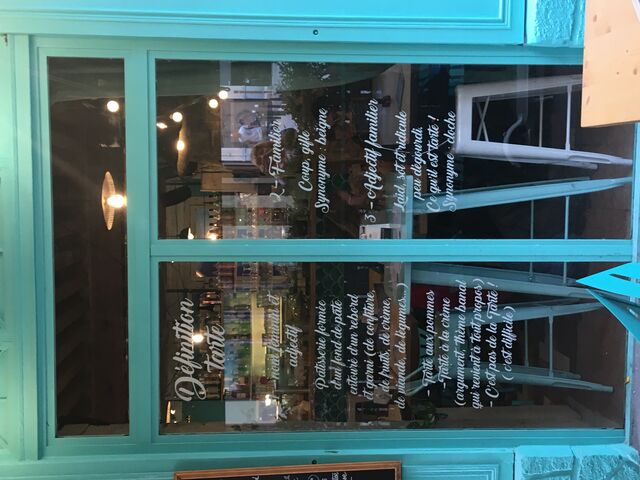 Définition
tarte
nom féminin et
adjectif
Patisserie formée
d'un fond de pâte
entouré d'un rebord
et garni (de confiture,
de fruits, de crème,
de viande, de légumes...)
- Tarte aux pommes
- Tarte à la crème
(argument, thème banal
qui revient à tout propos)
- C'est pas de la Tarte !
(c'est difficile)
2 - Familier
Coup, gifle
Synonyme : baigne
3 - Adjectif familier
Laid, sot et ridicule
peu dégourdi.
Ce qu'il est tarte !
Synonyme : cloche